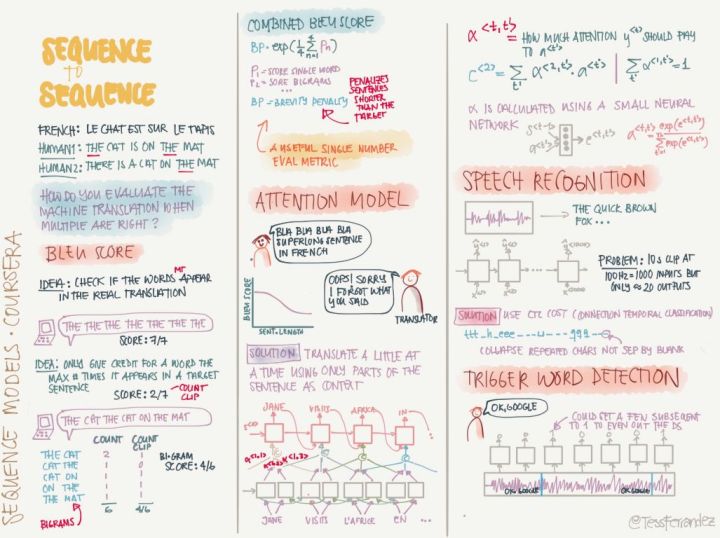 SEQUENCE MODELS · COURSERA
SEQUENCE
to
SEQUENCE
FRENCH: LE CHAT EST SUR LE TAPIS
HUMAN1: THE CAT IS ON THE MAT
HUMAN2: THERE IS A CAT ON THE MAT
HOW DO YOU EVALUATE THE
MACHINE TRANSLATION WHEN
MULTIPLE ARE RIGHT?
BLEU SCORE
IDEA: CHECK IF THE WORDS MT APPEAR
IN THE REAL TRANSLATION
THE THE THE THE THE THE THE
SCORE: 7/7
IDEA: ONLY GIVE CREDIT FOR A WORD THE
MAX # TIMES IT APPEARS IN A TARGET
SENTENCE
SCORE: 2/7
COUNT
CLIP
THE CAT THE CAT ON THE MAT
COUNT
COUNT
CLIP
THE CAT 2 1
CAT THE 1 0
CAT ON 1 1
ON THE 1 1
THE MAT 1 1
6 4/6
BIGRAM
SCORE: 4/6
BIGRAMS
COMBINED BLEU SCORE
BP · exp(1/4 Σ Pn)
n=1
4
P1 = SCORE SINGLE WORD
P2 = SORE BIGRAMS
...
BP = BREVITY PENALTY
PENALIZES
SENTENCES
SHORTER
THAN THE
TARGET
A USEFUL SINGLE NUMBER
EVAL METRIC
ATTENTION MODEL
BLA BLA BLA BLA
SUPERLONG SENTENCE
IN FRENCH
BLEU SCORE
SENT. LENGTH
OOPS! SORRY
I FORGOT WHAT
YOU SAID
TRANSLATOR
SOLUTION TRANSLATE A LITTLE AT
A TIME USING ONLY PARTS OF THE
SENTENCE AS CONTEXT
JANE VISITS AFRICA IN ...
JANE VISITS L'AFRICE EN ...
α<t,t'> = HOW MUCH ATTENTION y<t> SHOULD PAY
TO a<t'>
C<2> = Σ α<2,t'> · a<t'> | Σ α<1,t'> = 1
t' t'
α IS CALCULATED USING A SMALL NEURAL
NETWORK
s<t-1>
a<t'>
e<t,t'>
α<t,t'> = exp(e<t,t'>)
Σ exp(e<t,t'>)
SPEECH RECOGNITION
THE QUICK BROWN
FOX ...
PROBLEM: 10s CLIP AT
100Hz = 1000 INPUTS BUT
ONLY ≈ 20 OUTPUTS
SOLUTION USE CTC COST (CONNECTION TEMPORAL CLASSIFICATION)
COLLAPSE REPEATED CHARS NOT SEP BY BLANK
TRIGGER WORD DETECTION
OK, GOOGLE
COULD SET A FEW SUBSEQUENT
TO 1 TO EVEN OUT THE DS
OK, GOOGLE
OK GOOGLE
@TessFerrandez